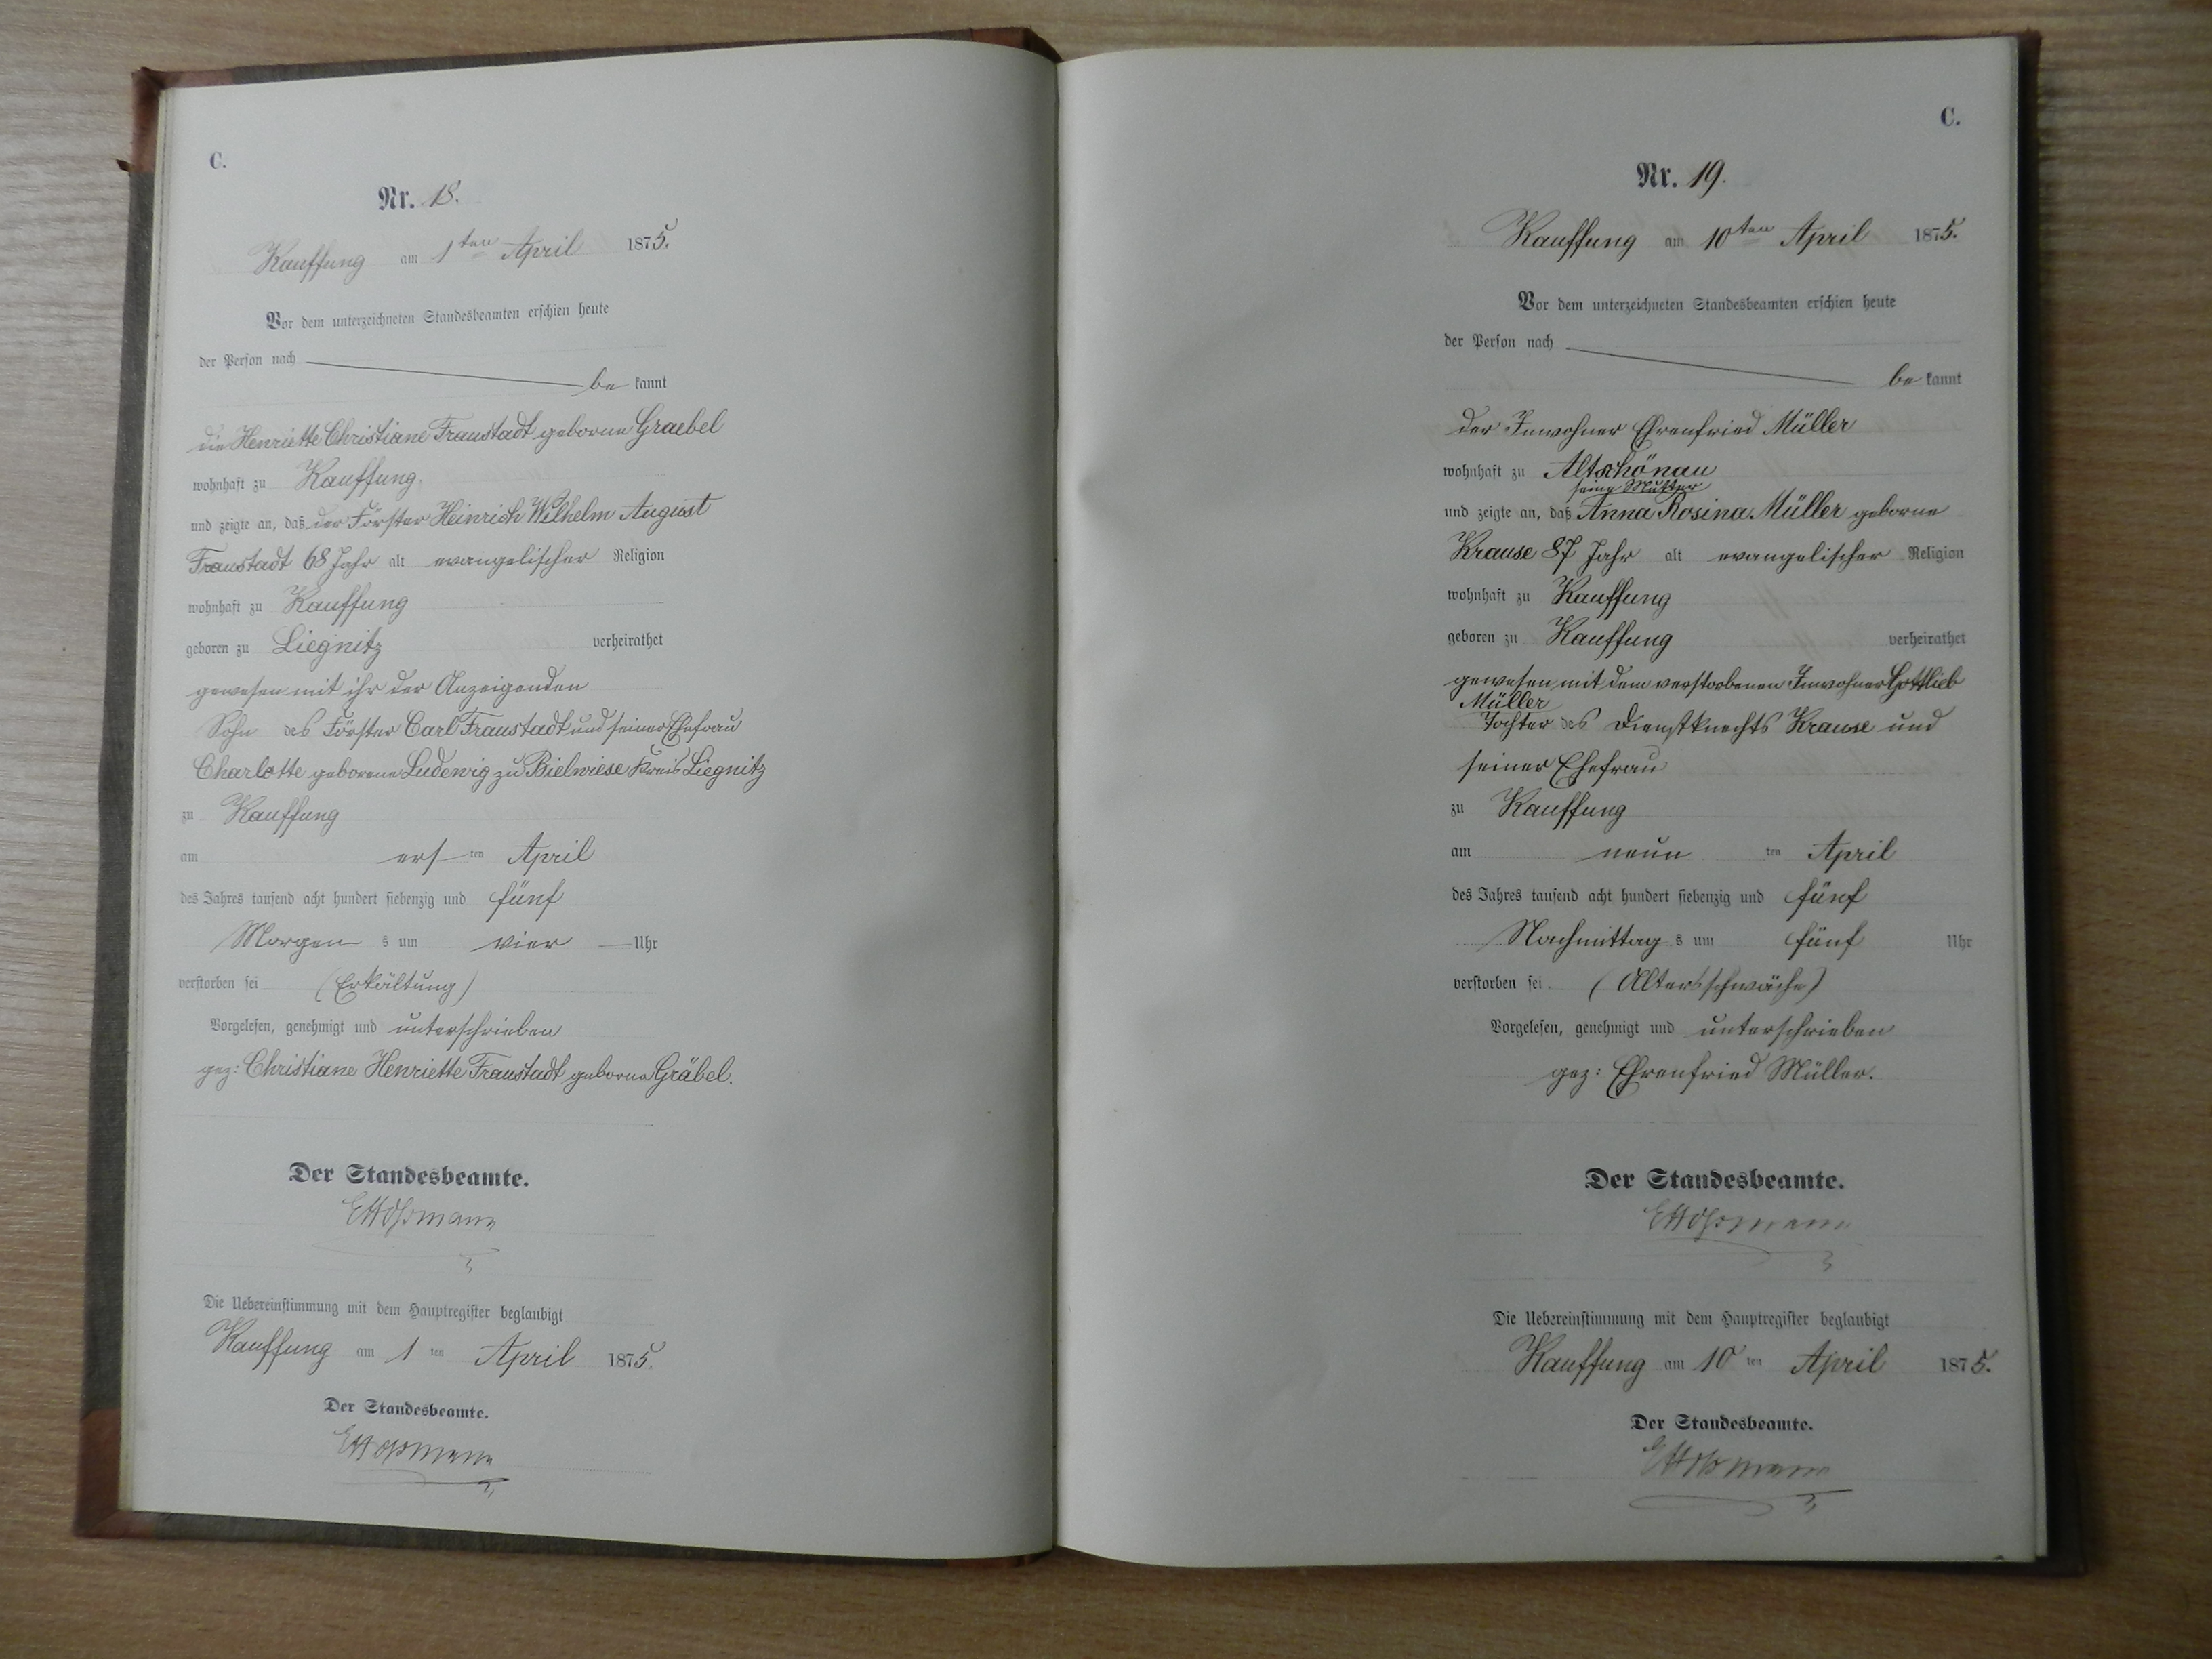 C.
Nr. 18.
Kauffung am 1ten April 1875.
Vor dem unterzeichneten Standesbeamten erschien heute
der Person nach
be kannt
die Henriette Christiane Fraustadt geborne Graebel
wohnhaft zu Kauffung.
und zeigte an, daß der Förster Heinrich Wilhelm August
Fraustadt 68 Jahr alt evangelischer Religion
wohnhaft zu Kauffung
geboren zu Liegnitz verheirathet
gewesen mit ihr der Anzeigenden
Sohn des Förster Carl Fraustadt und seiner Ehefrau
Charlotte geborene Ludewig zu Bielwiese Kreis Liegnitz
zu Kauffung
am ers ten April
des Jahres tausend acht hundert siebenzig und fünf
Morgen s um vier Uhr
verstorben sei (Erkältung)
Vorgelesen, genehmigt und unterschrieben
gez: Christiane Henriette Fraustadt geborne Gräbel.
Der Standesbeamte.
Die Uebereinstimmung mit dem Hauptregister beglaubigt
Kauffung am 1 ten April 1875.
Der Standesbeamte.
C.
Nr. 19.
Kauffung am 10ten April 1875.
Vor dem unterzeichneten Standesbeamten erschien heute
der Person nach
be kannt
der Inwohner Ehrenfried Müller
wohnhaft zu Altschönau
seine Mutter
und zeigte an, daß Anna Rosina Müller geborne
Krause 87 Jahr alt evangelischer Religion
wohnhaft zu Kauffung
geboren zu Kauffung verheirathet
gewesen mit dem verstorbenen Inwohner Gottlieb
Müller
Tochter des Dienstknechts Krause und
seiner Ehefrau
zu Kauffung
am neun ten April
des Jahres tausend acht hundert siebenzig und fünf
Nachmittag s um fünf Uhr
verstorben sei. (Altersschwäche)
Vorgelesen, genehmigt und unterschrieben
gez: Ehrenfried Müller.
Der Standesbeamte.
Die Uebereinstimmung mit dem Hauptregister beglaubigt
Kauffung am 10 ten April 1875.
Der Standesbeamte.